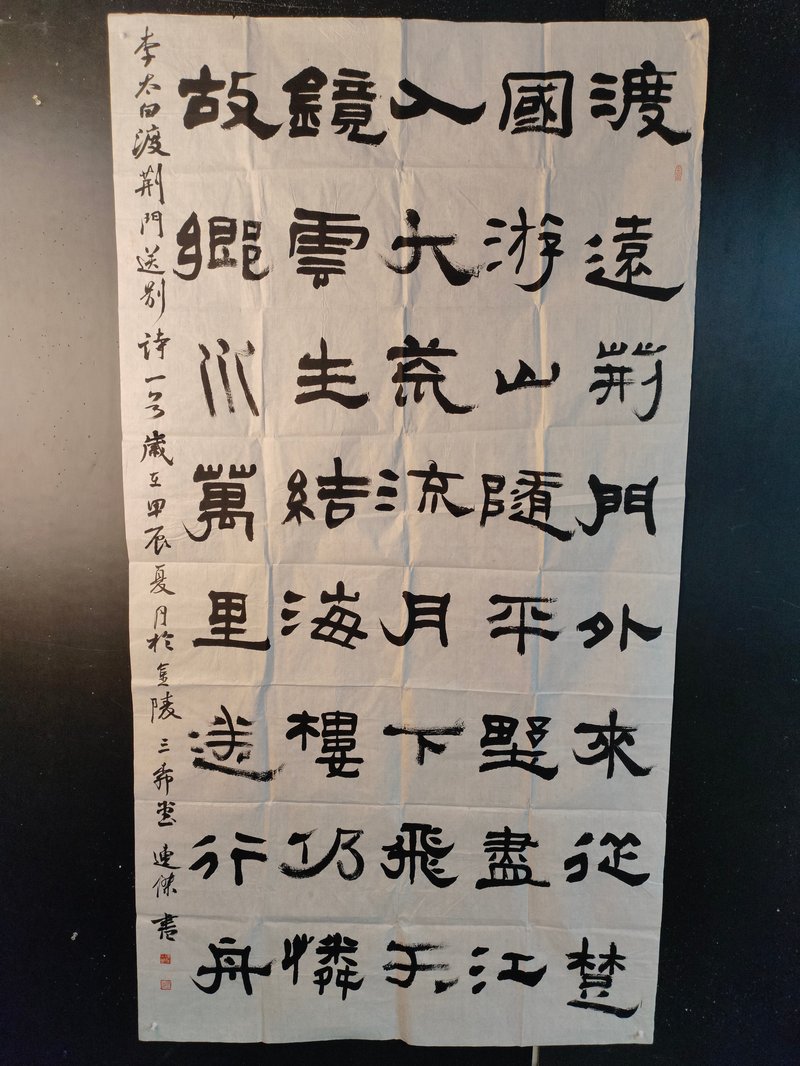 渡遠荆門外來從楚
國游山隨平野盡江
入大荒流月下飛天
鏡雲生結海樓仍憐
故鄉水萬里送行舟
李太白渡荆門送別詩一首歲在甲辰夏月於金陵三希堂連傑書